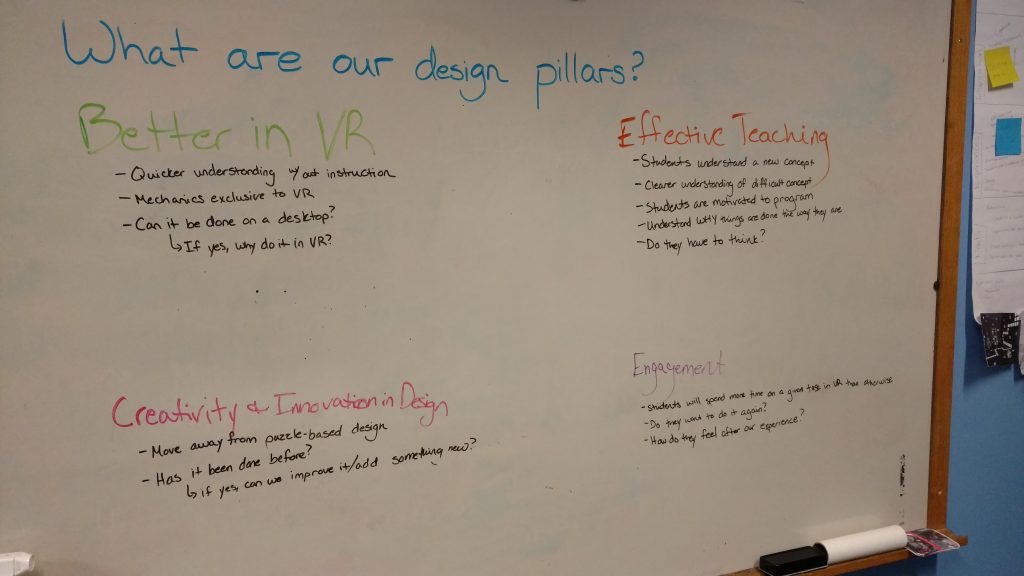 What are our design pillars?
Better in VR
- Quicker understanding w/out instruction
- Mechanics exclusive to VR
- Can it be done on a desktop?
↳ If yes, why do it in VR?
Effective Teaching
- Students understand a new concept
- Clearer understanding of difficult concept
- Students are motivated to program
- Understand WHY things are done the way they are
- Do they have to think?
Creativity & Innovation in Design
- Move away from puzzle-based design
- Has it been done before?
↳ if yes, can we improve it/add something new?
Engagement
- Students will spend more time on a given task in VR than otherwise
- Do they want to do it again?
- How do they feel after our experience?